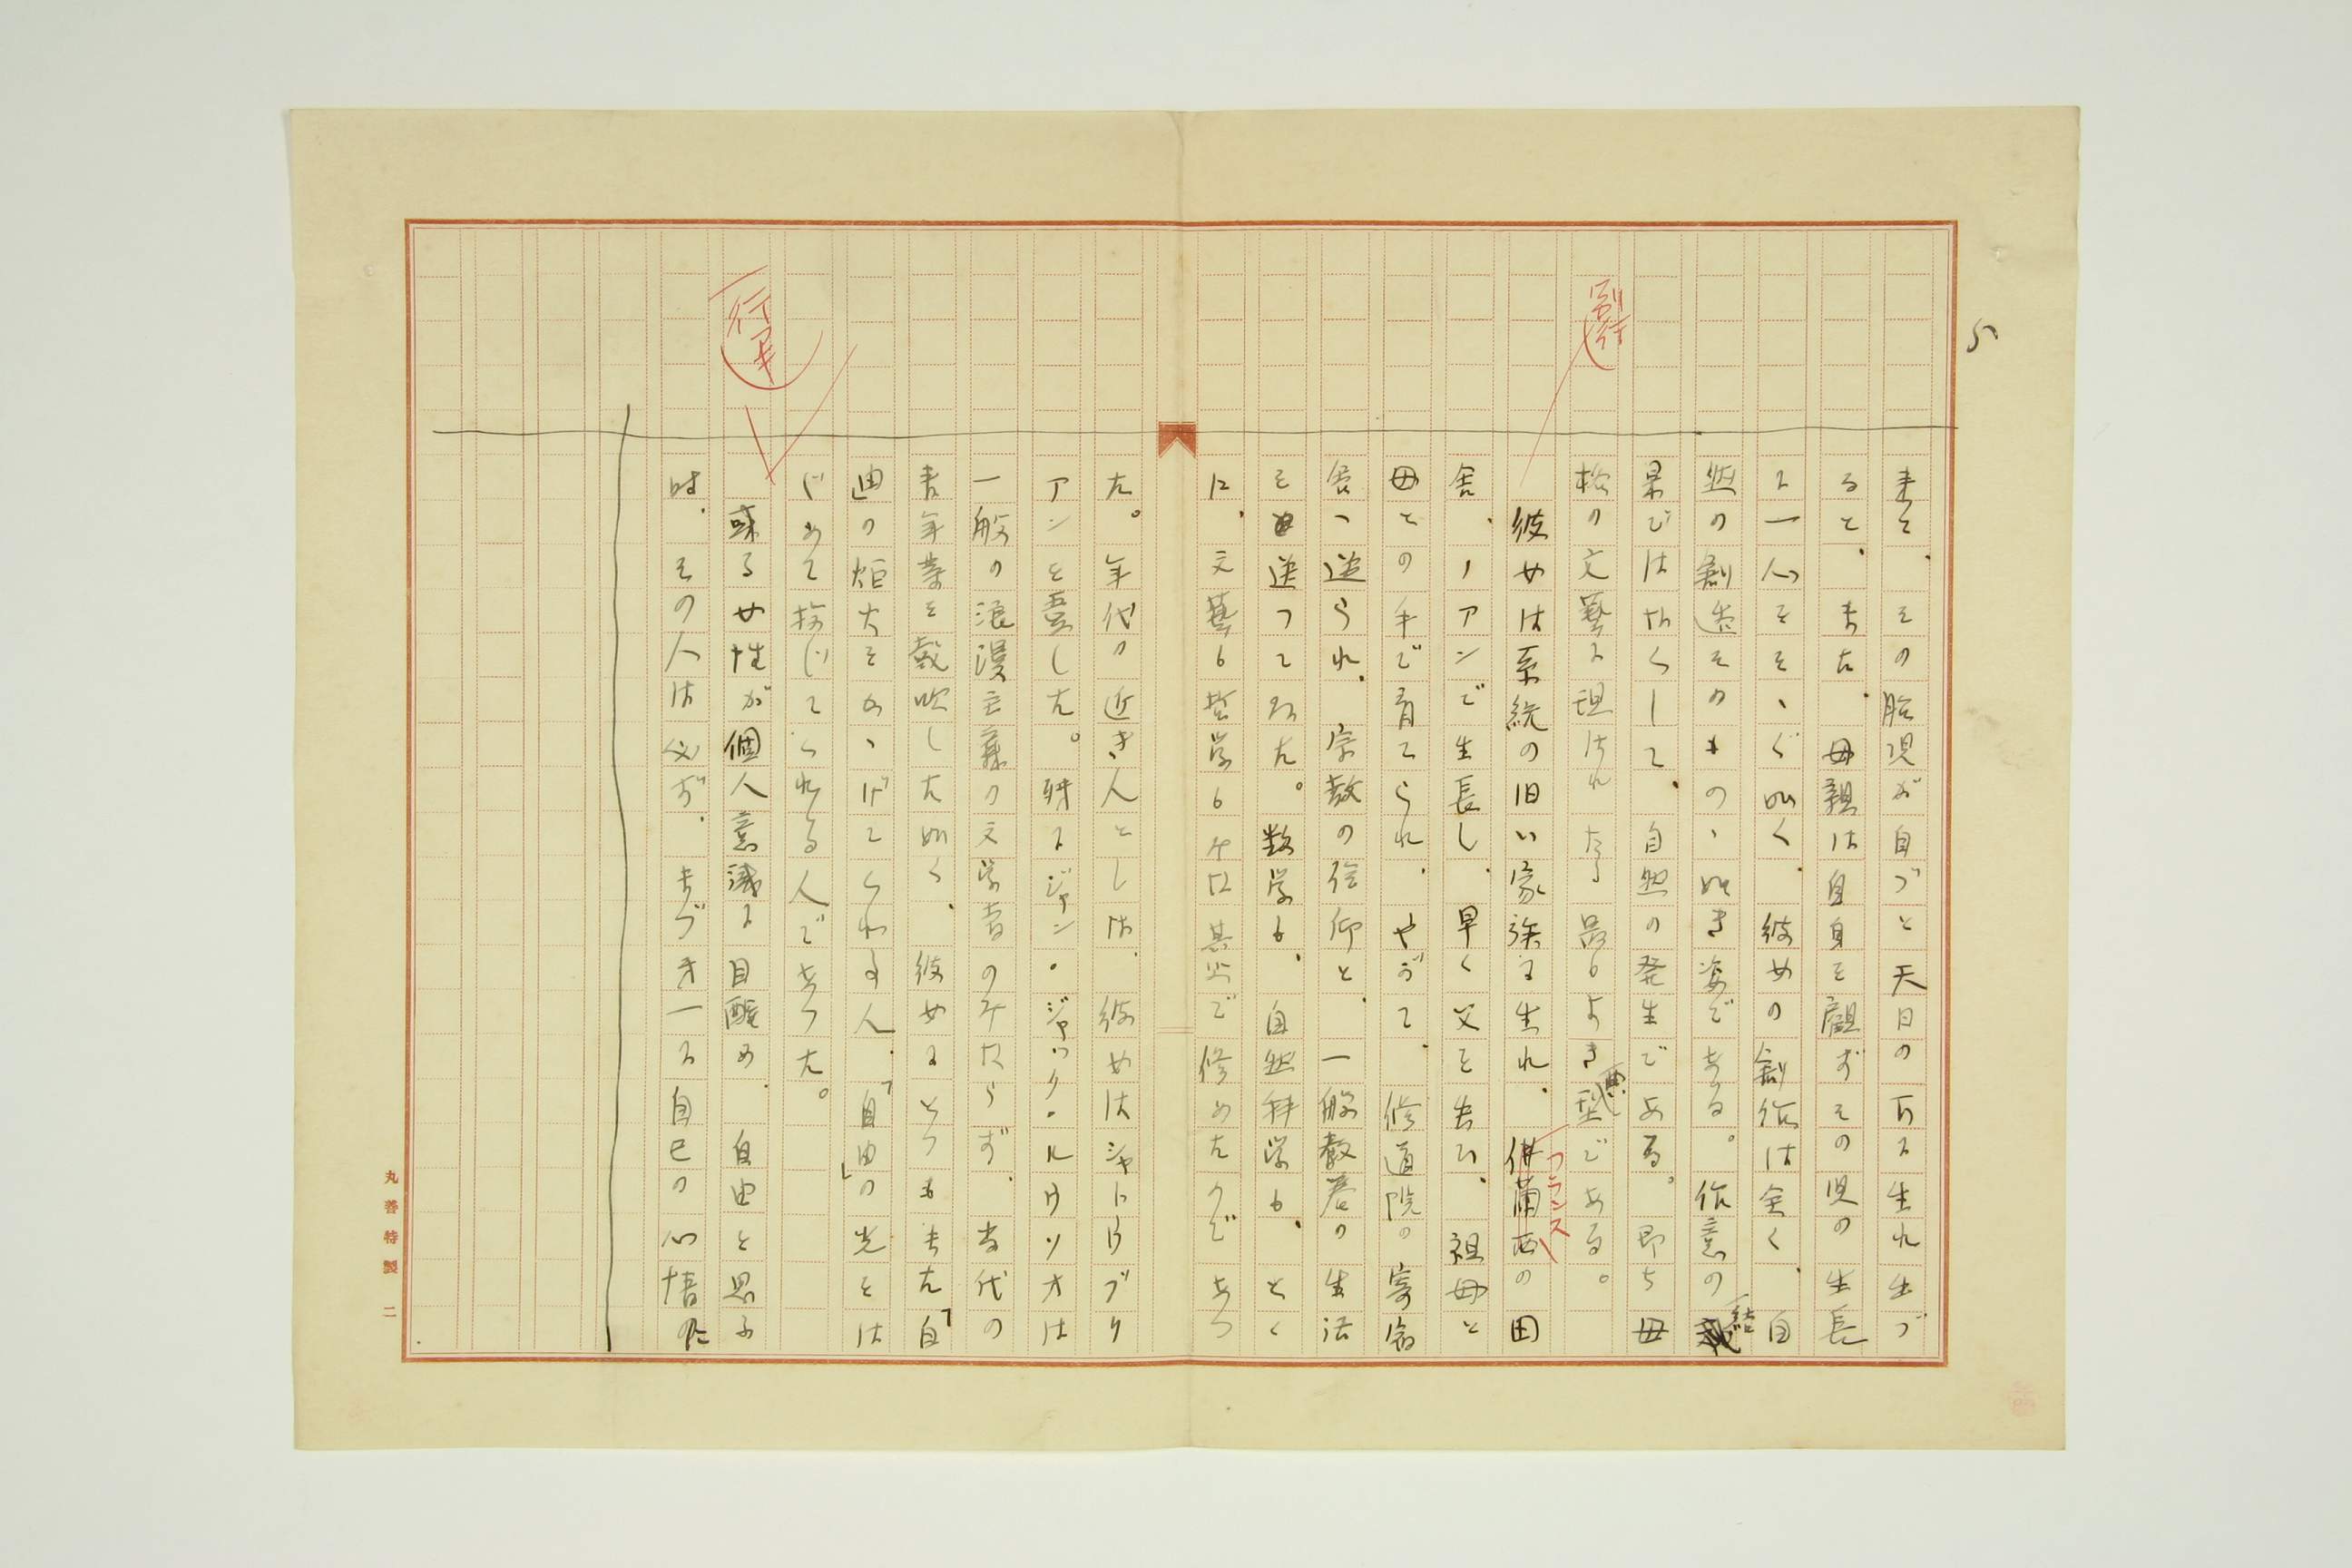 5
来て、その胎児が自づと天日の下に生れ出づ
ると、また、母親は自身を顧ずその児の生長
に一心をそゝぐ如く、彼女の創作は全く、自
然の創造そのもの、如き姿である。作意の結
果ではなくして、自然の発生である。即ち母
性の文藝に現はれたる最もよき典型である。
別行
彼女は系統の旧い家族に生れ、佛蘭西の田
フランス
舎、ノアンで生長し、早く父を失ひ、祖母と
母との手で育てられ、やがて、修道院の寄宿
舎へ送られ、宗教の信仰と、一般教養の生活
を送つてゐた。数学も、自然科学も、とく
に、文藝も哲学もみな其処で修めたのであつ
た。年代の近き人としは、彼女はシャトウブリ
アンを喜した。殊にジャン・ジャック・ルウソオは
一般の浪漫主義の文学者のみならず、当代の
青年輩を鼓吹した如く、彼女にとつてもまた「自
由」の炬火をかゝげてくれる人、「自由」の光をは
じめて投じてくれる人であつた。
行革
或る女性が個人意識に目醒め、自由を思ふ
時、その人は必ず、まづオ一に自己の心情の
丸善特製 二